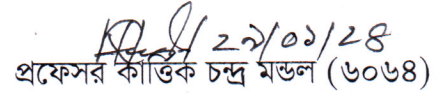 ২৯/০১/২৪
প্রফেসর কার্ত্তিক চন্দ্র মন্ডল (৬০৬৪)